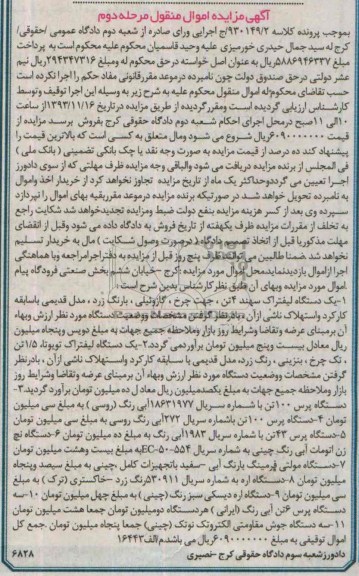 آگهی مزایده اموال منقول مرحله دوم
بموجب پرونده کلاسه ۹۳۰۱۴۹/۲ج اجرایی ورای صادره از شعبه دوم دادگاه عمومی /حقوقی/
کرج له سید جمال حیدری خورمیزی علیه وحید قاسمیان محکوم علیه محکوم است به پرداخت
مبلغ ۵۸۸۶۹۴۶۳۳۷ریال به عنوان اصل خواسته درحق محکوم له ومبلغ ۲۹۴۳۴۷۳۱۶ریال نیم
عشر دولتی درحق صندوق دولت چون نامبرده درموعد مقررقانونی مفاد حکم را اجرا نکرده است
حسب تقاضای محکوم‌له اموال منقول محکوم علیه به شرح زیر به وسیله این اجرا توقیف وتوسط
کارشناس ارزیابی گردیده است ومقررگردیده از طریق مزایده درتاریخ ۱۳۹۳/۱۱/۱۶از ساعت
۱۰الی ۱۱صبح درمحل اجرای احکام شعبه دوم دادگاه حقوقی کرج بفروش برسد مزایده از
قیمت ۶۰۹۰۰۰۰۰۰۰ریال شروع می شود ومال متعلق به کسی است که بالاترین قیمت را
پیشنهاد کند ده درصد از قیمت مزایده به صورت وجه نقد یا چک بانکی تضمینی ( بانک ملی )
فی المجلس از برنده مزایده دریافت می شود والباقی وجه مزایده ظرف مهلتی که از سوی دادورز
اجرا تعیین می گرددوحداکثر یک ماه از تاریخ مزایده تجاوز نخواهد کرد از خریدار اخذ واموال
به نامبرده تحویل خواهد شد در صورتیکه برنده مزایده درموعد مقرربقیه بهای اموال را نپردازد
سپرده وی بعد از کسر هزینه مزایده بنفع دولت ضبط ومزایده تجدیدخواهد شد شکایت راجع
به تخلف از مقررات مزایده ظرف یکهفته از تاریخ فروش به دادگاه داده می شود وقبل از انقضای
مهلت مذکوریا قبل از اتخاذ تصمیم دادگاه ( درصورت وصول شکایت ) مال به خریدار تسلیم
نخواهد شد .ضمنا طالبین می توانند ظرف پنج روز قبل از مزایده به دفتراجرامراجعه وبا هماهنگی
اجرا ازاموال بازدیدنمایندمحل اموال مورد مزایده :کرج -خیابان ششم بخش صنعتی فرودگاه پیام
.اموال مورد مزایده وبهای آن طبق نظرکارشناس بدین شرح است :
۱-یک دستگاه لیفتراک سهند ۴تن ، جهت چرخ ، گازوئیلی ، بارنگ زرد ، مدل قدیمی باسابقه
کارکرد واستهلاک ناشی ازآن ، بادرنظرگرفتن مشخصات ووضعیت دستگاه مورد نظر ارزش وبهاء
آن برمبنای عرضه وتقاضا وشرایط روز بازار وملاحظه جمیع جهات به مبلغ دویس وپنجاه میلیون
ریال معادل بیست وپنج میلیون تومان برآوردمی گردد.۲-یک دستگاه لیفتراک تویوتا، ۱/۵تن
، تک چرخ ، بنزینی ، رنگ زرد، مدل قدیمی با سابقه کارکرد واستهلاک ناشی ازآن ، بادرنظر
گرفتن مشخصات ووضعیت دستگاه مورد نظر ارزش وبهاء آن برمبنای عرضه وتقاضا وشرایط روز
بازار وملاحظه جمیع جهات به مبلغ یکصدمیلیون ریال معادل ده میلیون تومان برآورد گردید.۳-
دستگاه پرس ۱۰۰تن با شماره سریال ۱۸۶۳۱۹۷۷آبی رنگ (روسی ) به مبلغ سی میلیون
تومان ۴-دستگاه پرس ۱۰۰تن باشماره سریال ۲۷۲آبی رنگ روسی به مبلغ سی میلیون تومان
۵-دستگاه پرس ۴۳تن با شماره سریال ۱۹۸۳آبی رنگ به مبلغ ده میلیون تومان ۶-دستگاه نچ
زن اتومات آبی رنگ چینی به شماره سریال EC-۵۰-۵۵۴به مبلغ بیست وهشت میلیون تومان
۷-دستگاه مولتی فرمینگ بارنگ آبی -سفید باتجهیزات کامل ،چینی به مبلغ سیصد وپنجاه
میلیون تومان ۸-دستگاه اره به شماره سریال ۵۳۰۹۱۱رنگ زرد -خاکستری (ترک ) به مبلغ
سی میلیون تومان ۹-دستگاه اره دیسکی سبز رنگ (چینی ) به مبلغ چهل میلیون تومان ۱۰-سه
دستگاه پرس ۶تن آبی رنگ (ایرانی ) هردستگاه دومیلیون تومان جمعا هشت میلیون تومان
۱۱-سه دستگاه جوش مقاومتی الکترونک نوتک (چینی) جمعا پنجاه میلیون تومان .جمع کل
اموال توقیفی به مبلغ ۶۰۹۰۰۰۰۰۰۰ریال می باشد.م الف۱۶۴۴۳
دادورزشعبه سوم دادگاه حقوقی کرج -نصیری
۶۸۲۸